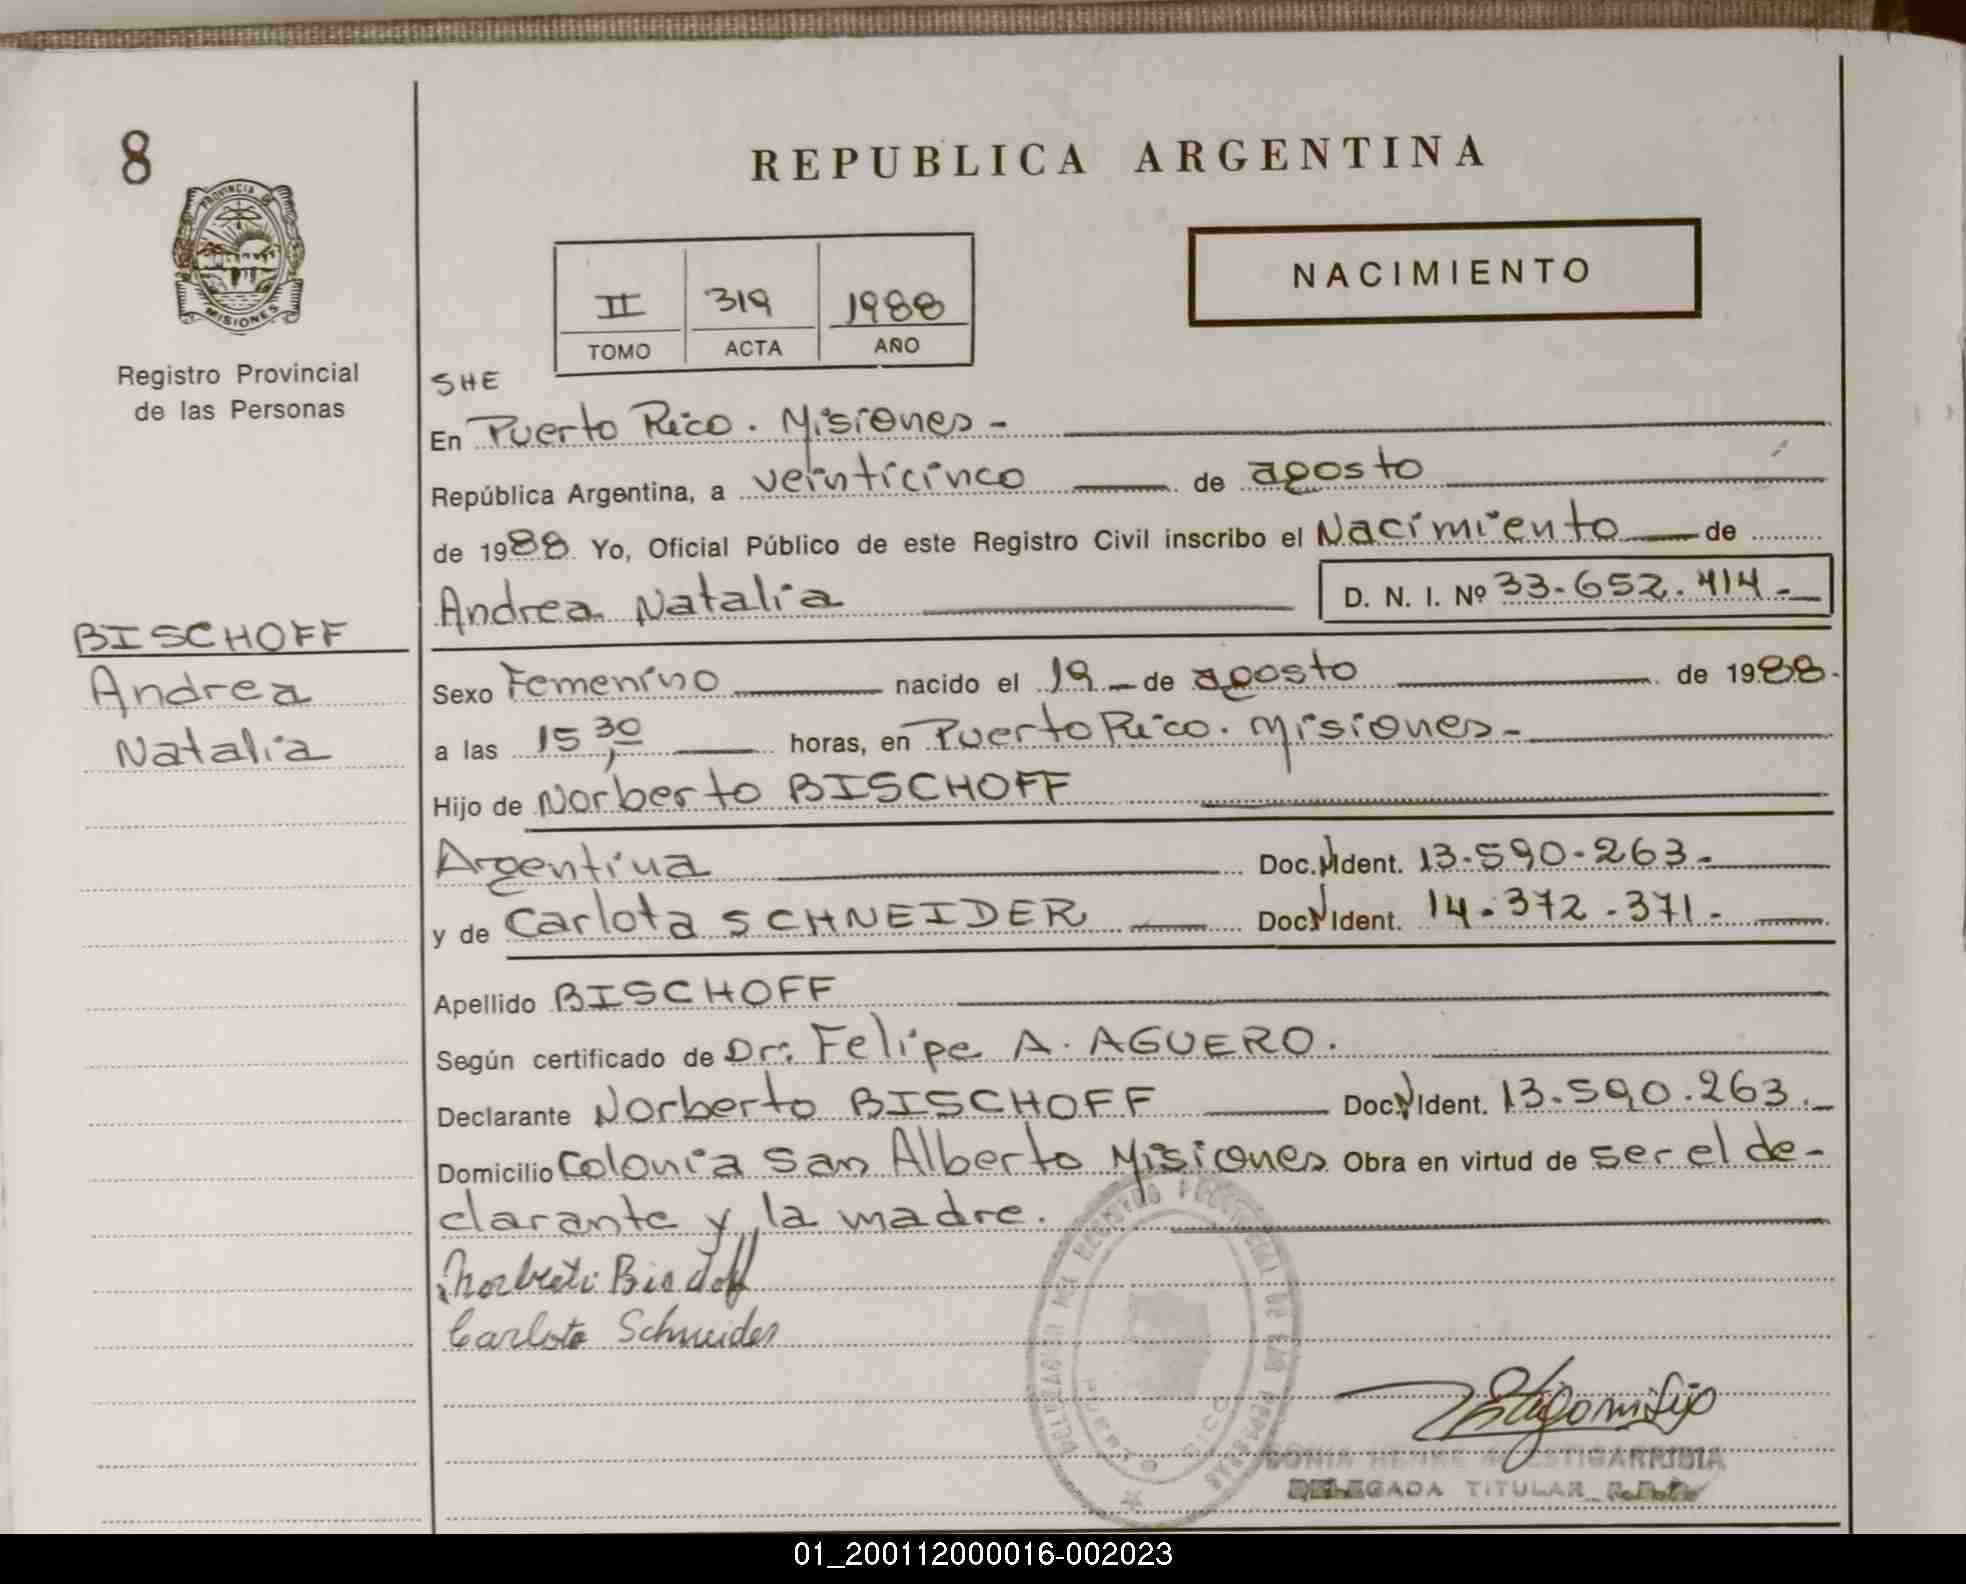 8
PROVINCIA DE
MISIONES
Registro Provincial
de las Personas
BISCHOFF
Andrea
Natalia
REPUBLICA ARGENTINA
NACIMIENTO
II 319 1988
TOMO ACTA AÑO
SHE
En Puerto Rico. Misiones -
República Argentina, a veinticinco de agosto
de 1988 Yo, Oficial Público de este Registro Civil inscribo el Nacimiento de
Andrea Natalia D. N. I. Nº 33.652.414.-
Sexo Femenino nacido el 19 de agosto de 1988.
a las 15,30 horas, en Puerto Rico. Misiones.-
Hijo de Norberto BISCHOFF
Argentina Doc. Ident. 13.590.263.-
y de Carlota SCHNEIDER Doc. Ident. 14.372.371.-
Apellido BISCHOFF
Según certificado de Dr: Felipe A. AGUERO.
Declarante Norberto BISCHOFF Doc. Ident. 13.590.263.-
Domicilio Colonia San Alberto Misiones Obra en virtud de ser el de-
clarante y la madre.
Norberto Bischoff
Carlota Schneider
DELEGACION REGISTRO PROVINCIAL DE LAS PERSONAS
PUERTO RICO
SONIA
DELEGADA TITULAR
01_200112000016-002023